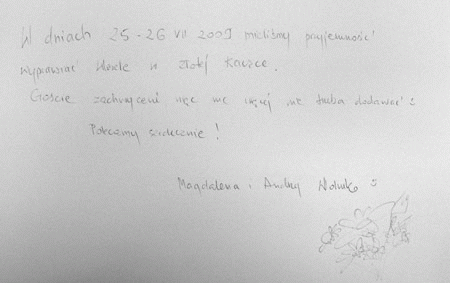 W dniach 25-26 VII 2009 mieliśmy przyjemność
wyprawiać wesele w Złotej Kaczce.
Goście zachwyceni więc nic więcej nie trzeba dodawać :)
Polecamy serdecznie!
Magdalena i Andrzej :)